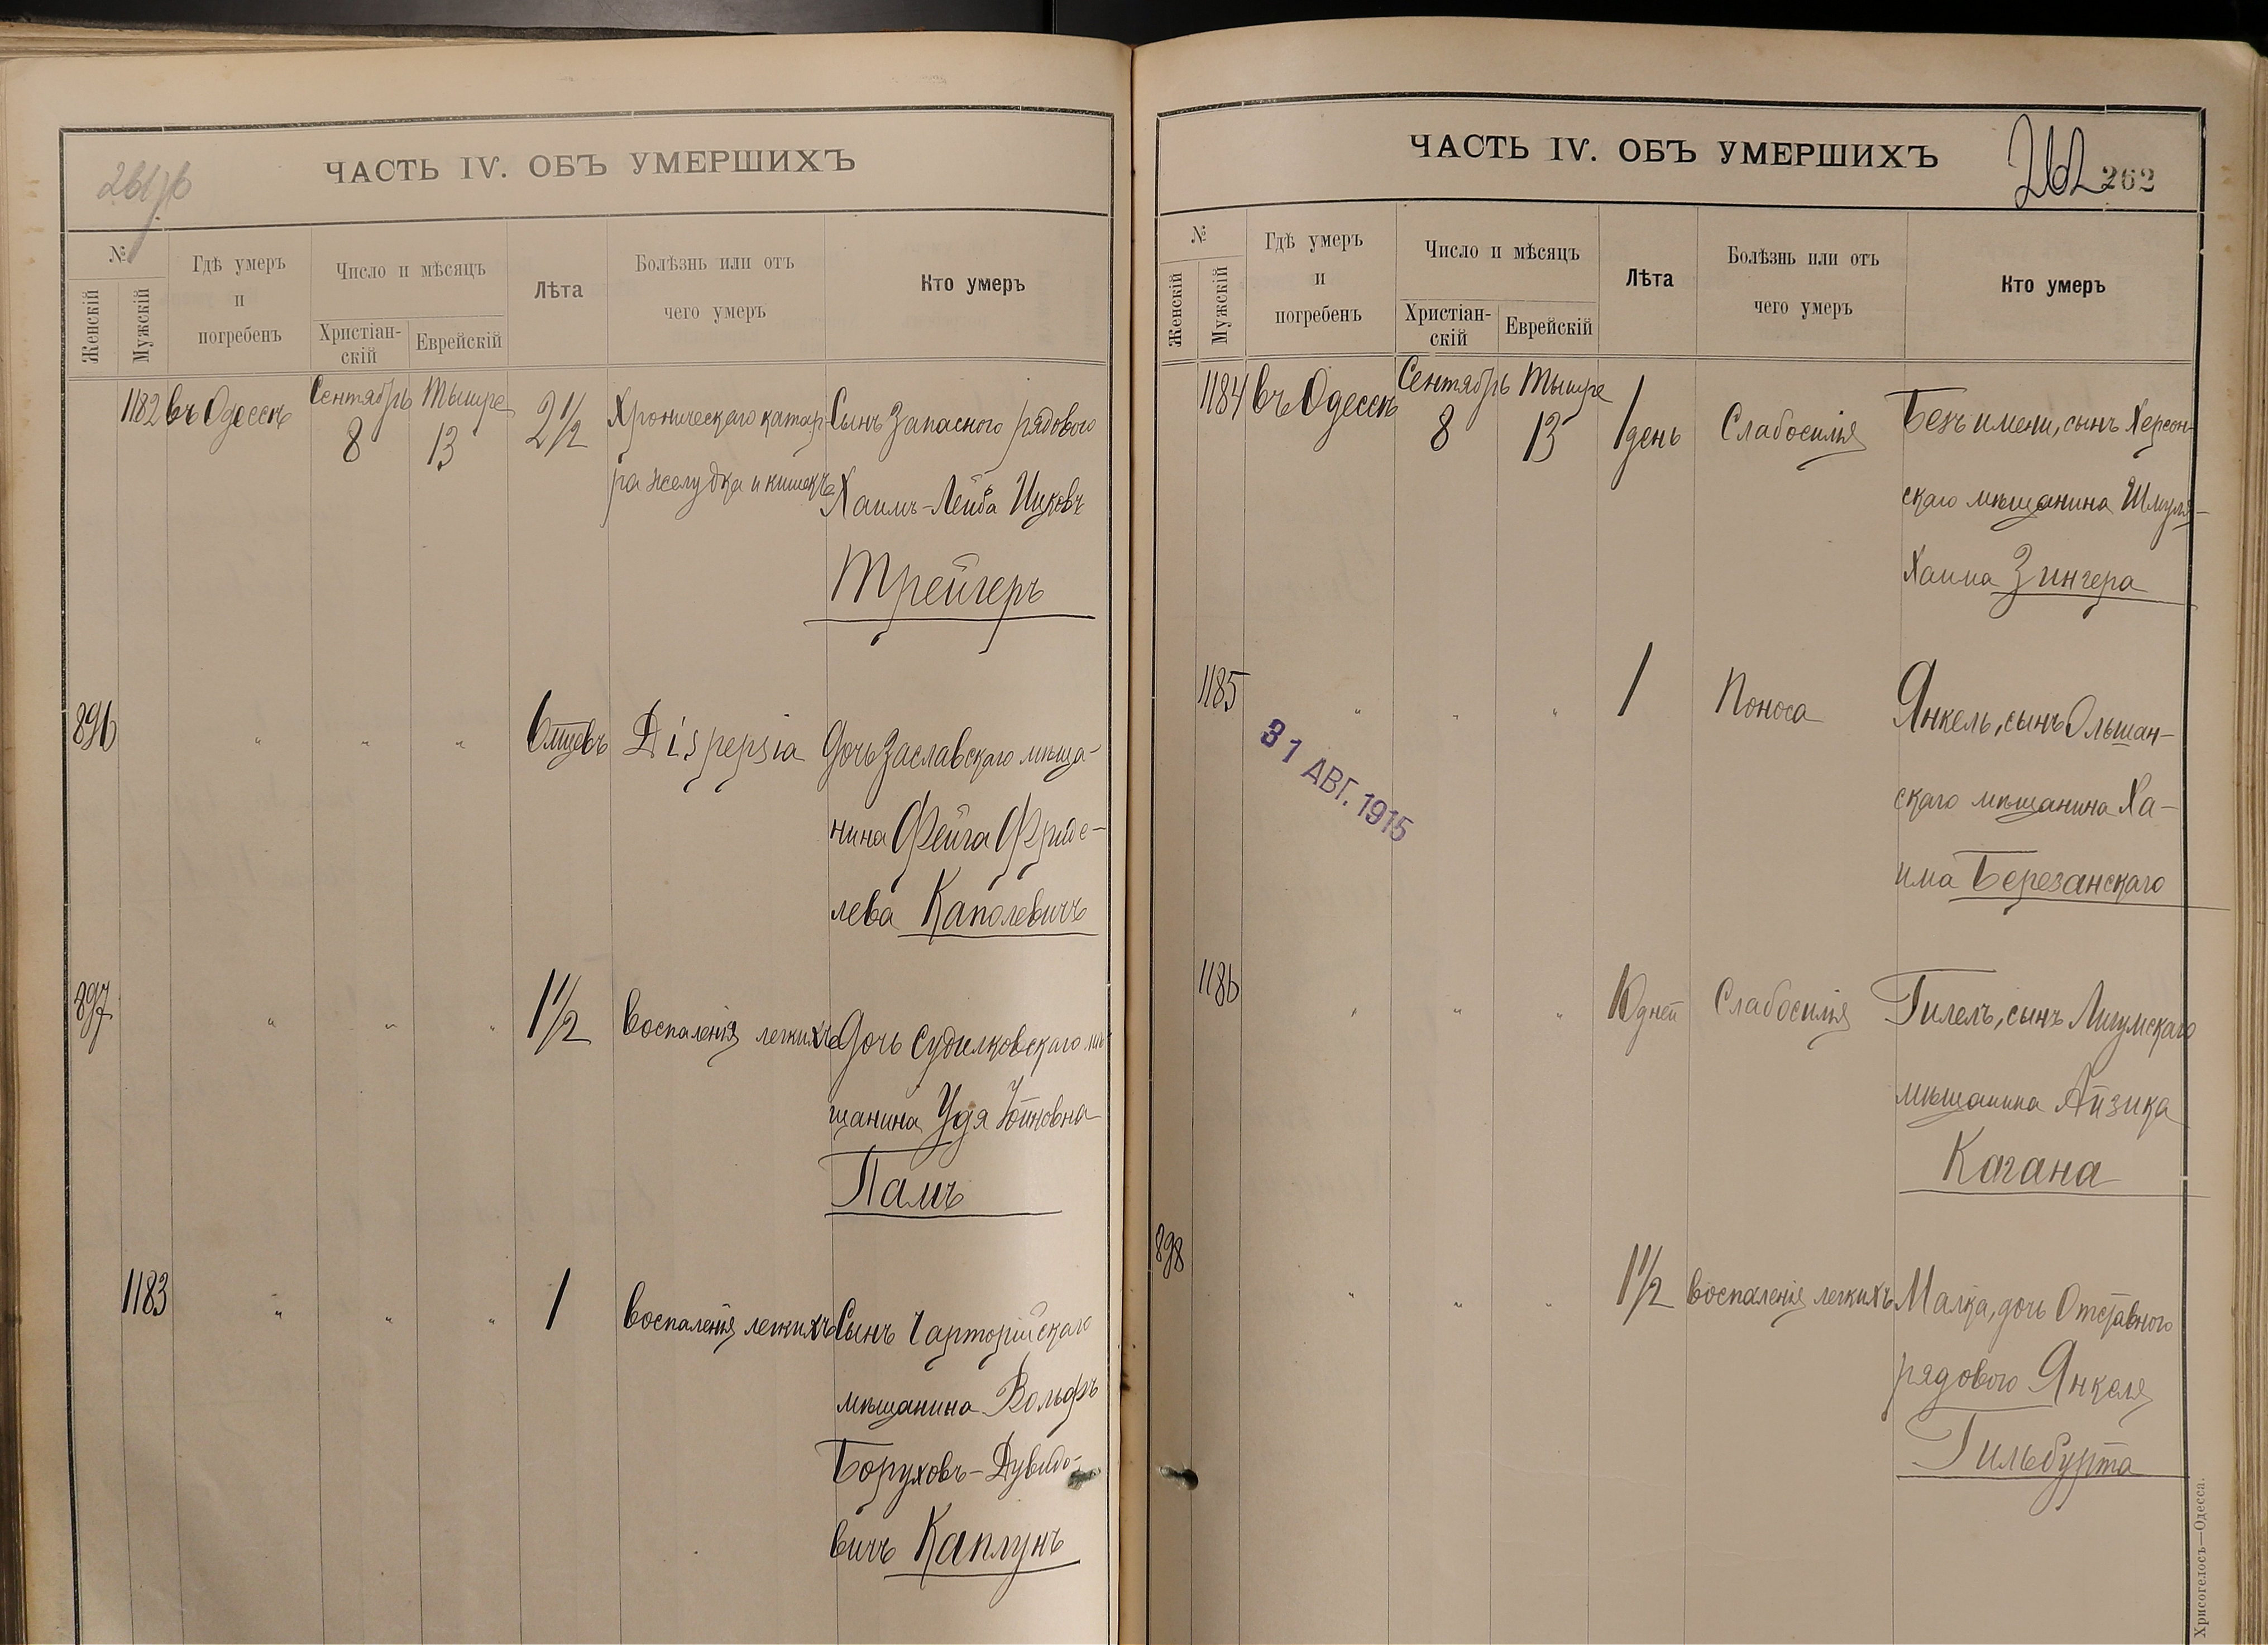 261 об
ЧАСТЬ IV. ОБЪ УМЕРШИХЪ
№
Женскій
Мужскій
Гдѣ умеръ
и
погребенъ
Число и мѣсяцъ
Христіан-
скій
Еврейскій
Лѣта
Болѣзнь или отъ
чего умеръ
Кто умеръ
1182 въ Одессѣ Сентябрь 8 Тышре 13 2 1/2 Хроническаго катар- Сынъ запасного рядового
ра желудка и кишекъ Хаимъ-Лейба Ицковъ
Трейгеръ
896 " " " 6 мцевъ Dispepsia Дочь Заславскаго мѣща-
нина Фейга Фриде-
лева Каполевичъ
897 " " " 1 1/2 Воспаленія легкихъ Дочь Судилковскаго мѣ-
щанина Удя Хойновна
Паmъ
1183 " " " 1 Воспаленія легкихъ Сынъ Чарторійскаго
мѣщанина Вольфъ
Боруховъ-Дувидо-
вичъ Каплунъ
ЧАСТЬ IV. ОБЪ УМЕРШИХЪ
262 262
№
Женскій
Мужскій
Гдѣ умеръ
и
погребенъ
Число и мѣсяцъ
Христіан-
скій
Еврейскій
Лѣта
Болѣзнь или отъ
чего умеръ
Кто умеръ
1184 въ Одессѣ Сентябрь 8 Тышре 13 1 день Слабосилія Безъ имени, сынъ Херсон-
скаго мѣщанина Шмуля-
Хаима Зингера
1185 " " " 1 Поноса Янкель, сынъ Ольшан-
скаго мѣщанина Ха-
има Березанскаго
31 АВГ. 1915
1186 " " " 10 дней Слабосилія Гилелъ, сынъ Лигумскаго
мѣщанина Айзика
Кагана
898 " " " 1 1/2 Воспаленія легкихъ Малка, дочь Отставного
рядового Янкеля
Гильбурта
Хрисогелосъ—Одесса.